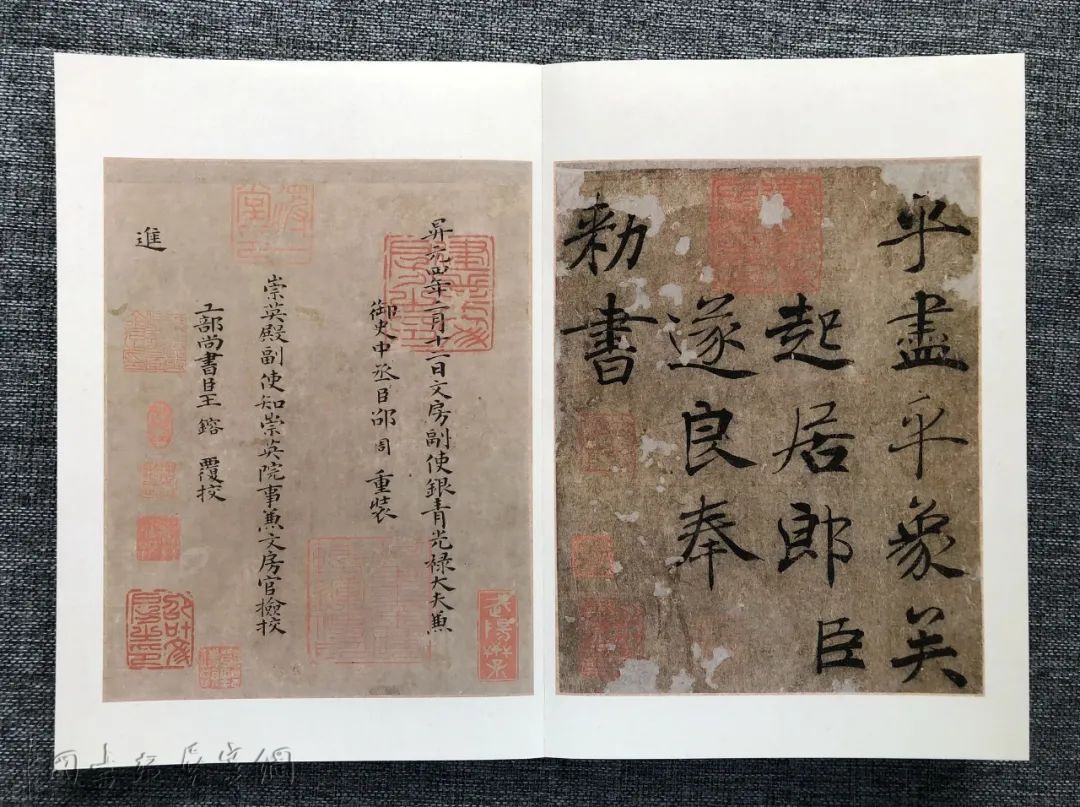 乎盡乎象矣
起居郎臣
遂良奉
勑書
昇元四年二月十二日文房副使銀青光禄大夫兼
御史中丞臣邵周重裝
崇英殿副使知崇英院事兼文房官檢校
工部尚書臣王鎔覆校
進